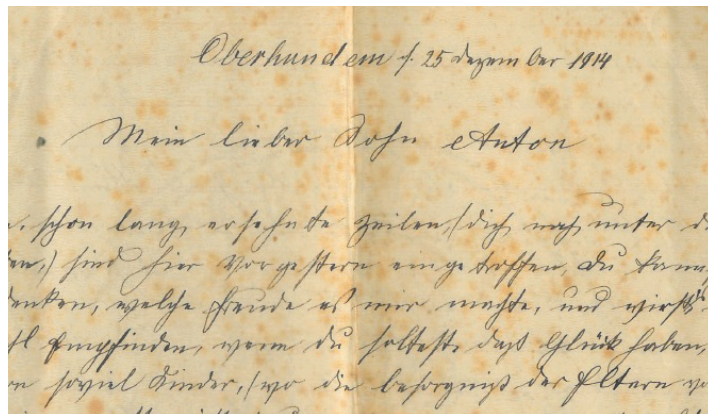 Oberhundem d. 25 Dezember 1914
Mein lieber Sohn Anton
schon lang ersehnte Zeilen, (dich noch unter d
en,) sind hier vorgestern eingetroffen, du kann
denken, welche Freude es mir machte, und wirst
Empfinden, wenn du solltest daß Glück haben,
soviel Kinder, (wo die besorgniß der Eltern